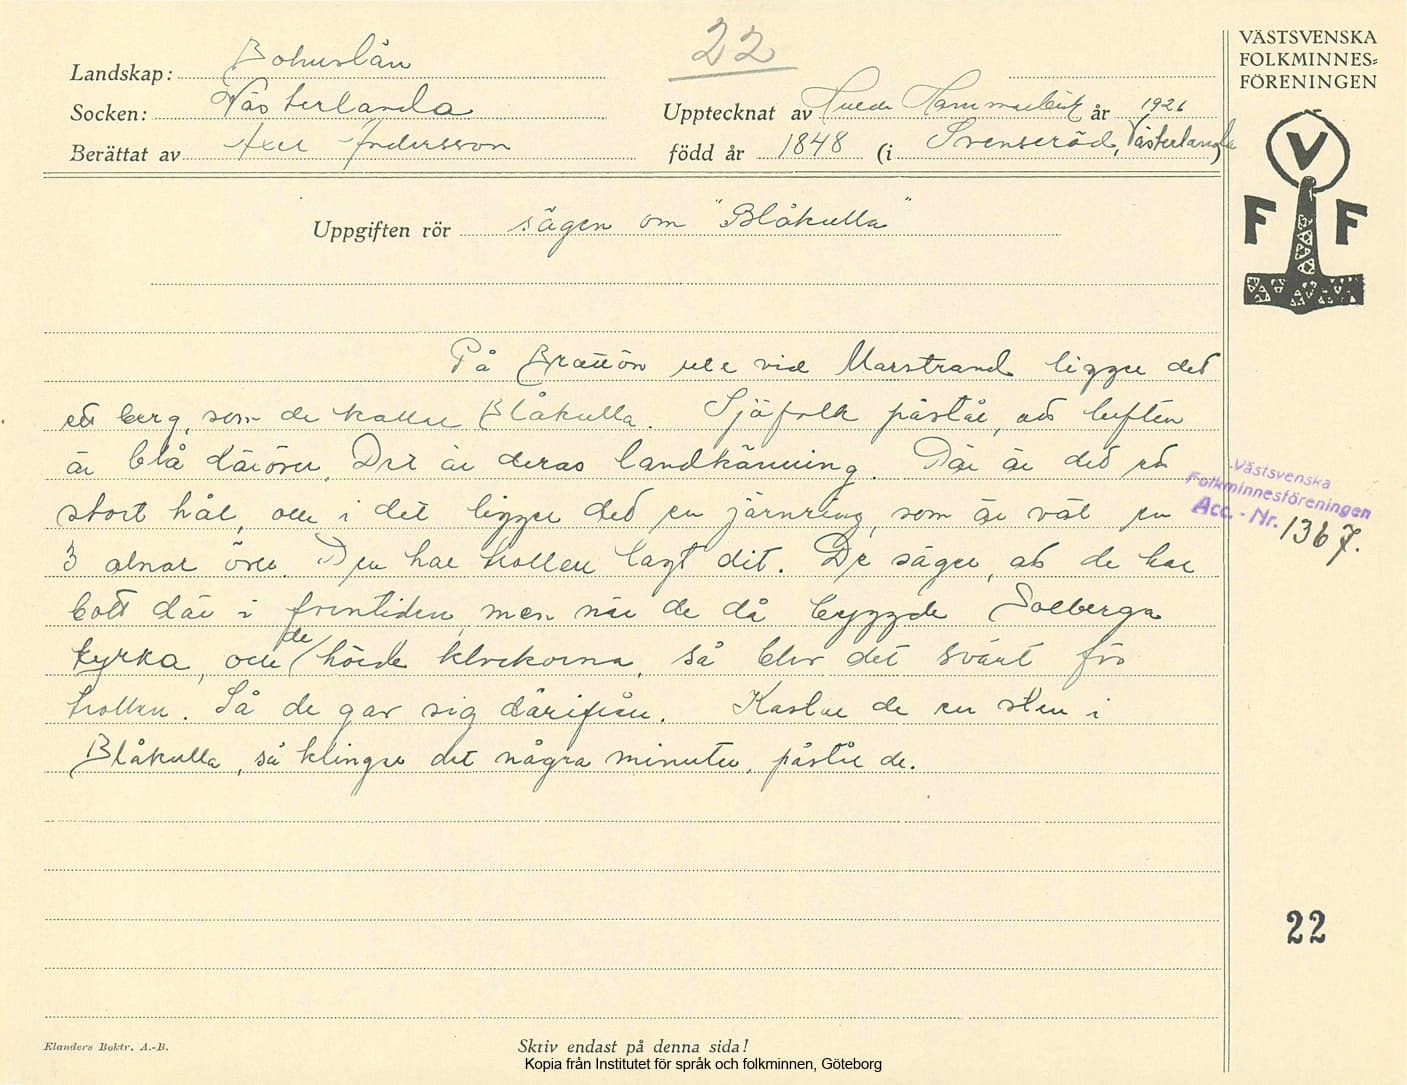 22
VÄSTSVENSKA
FOLKMINNES=
FÖRENINGEN
Landskap: Bohuslän
Socken: Västerlanda
Upptecknat av Hulda Hammarbäck år 1926
Berättat av Axel Andersson
född år 1848 (i Svenseröd, Västerlanda)
V
F F
Uppgiften rör sägen om "Blåkulla"
På Brattön ute vid Marstrand ligger det
ett berg, som de kallar Blåkulla. Sjöfolk påstår, att luften
är blå däröver. Det är deras landkänning. Där är det ett
stort hål, och i det ligger det en järnring, som är väl en
3 alnar över. Den har trollen lagt dit. De säger, att de har
bott där i forntiden, men när de då byggde Solberga
kyrka, och de hörde klockorna, så blev det svårt för
trollen. Så de gav sig därifrån. Kastar de en sten i
Blåkulla, så klingar det några minuter, påstår de.
Västsvenska
Folkminnesföreningen
Acc. - Nr. 1367.
22
Elanders Boktr. A.-B.
Skriv endast på denna sida!
Kopia från Institutet för språk och folkminnen, Göteborg